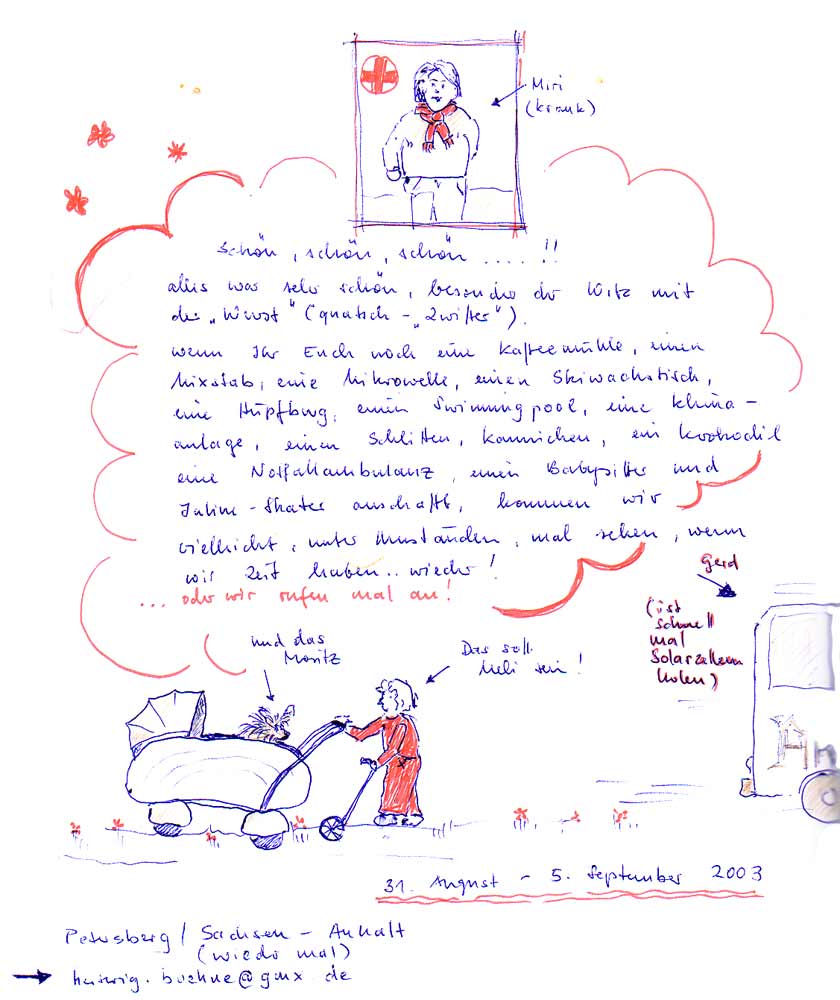 Miri
(krank)
Schön, schön, schön ..... !!
alles war sehr schön, besonders der Witz mit
der „Wurst" (quatsch - „Zwitter").
wenn Ihr Euch noch eine Kaffeemühle, einen
Mixstab, eine Mikrowelle, einen Skiwachstisch,
eine Hüpfburg, einen Swimmingpool, eine Klima-
anlage, einen Schlitten, Kaninchen, ein Krokodil
eine Notfallambulanz, einen Babysitter und
Inline-Skater anschafft, kommen wir
vielleicht, unter Umständen, mal sehen, wenn
wir Zeit haben.. wieder!
... oder wir rufen mal an!
Gerd
(ist
schnell
mal
Solarzellen
holen)
und das
Moritz
Das soll
Meli sein!
An
31. August - 5. September 2003
Petersberg / Sachsen - Anhalt
(wieder mal)